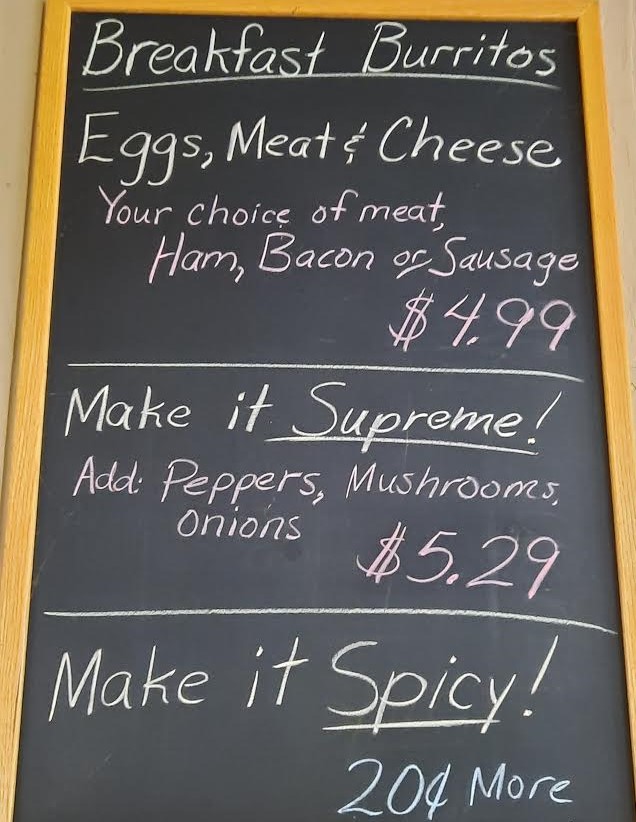 Breakfast Burritos
Eggs, Meat & Cheese
Your choice of meat,
Ham, Bacon or Sausage
$4.99
Make it Supreme!
Add: Peppers, Mushrooms,
onions
$5.29
Make it Spicy!
20¢ More